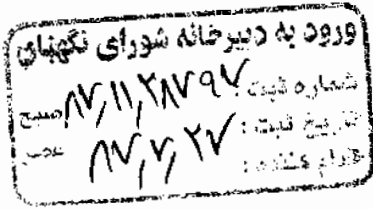 ورود به دبیرخانه شورای نگهبان
شماره ثبت: ۸۷/۱۱/۲۸۷۹۷ صبح
تاریخ ثبت: ۸۷/۷/۲۷ عصر
اقدام کننده: